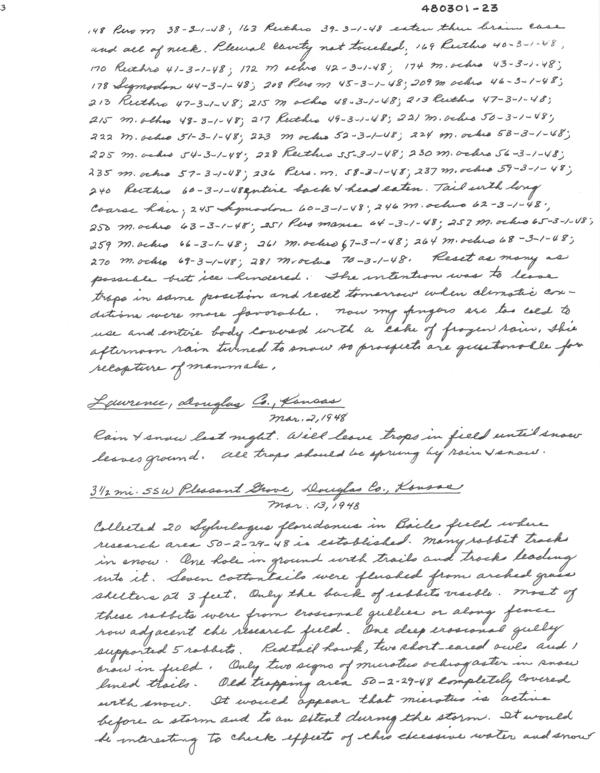 3
480301-23
148 Pero m 38-3-1-48; 163 Reithro 39-3-1-48 eaten thru brain case
and all of neck. Pleural cavity not touched; 169 Reithro 40-3-1-48,
170 Reithro 41-3-1-48; 172 m ochro 42-3-1-48; 174 m. ochro 43-3-1-48;
178 Sigmodon 44-3-1-48; 208 Pero m 45-3-1-48; 209 m ochro 46-3-1-48;
213 Reithro 47-3-1-48; 215 m ochro 48-3-1-48; 213 Reithro 47-3-1-48;
215 m. ochro 48-3-1-48; 217 Reithro 49-3-1-48; 221 m. ochro 50-3-1-48;
222 m. ochro 51-3-1-48; 223 m ochro 52-3-1-48; 224 m. ochro 53-3-1-48;
225 m. ochro 54-3-1-48; 228 Reithro 55-3-1-48; 230 m. ochro 56-3-1-48;
235 m. ochro 57-3-1-48; 236 Pero. m. 58-3-1-48; 237 m. ochro 59-3-1-48;
240 Reithro 60-3-1-48 entire back & head eaten. Tail with long
coarse hair; 245 Sigmodon 60-3-1-48; 246 m. ochro 62-3-1-48;
250 m. ochro 63-3-1-48; 251 Pero manic 64-3-1-48; 257 m. ochro 65-3-1-48;
259 m. ochro 66-3-1-48; 261 m. ochro 67-3-1-48; 264 m. ochro 68-3-1-48;
270 m. ochro 69-3-1-48; 281 m. ochro 70-3-1-48. Reset as many as
possible but ice hindered. The intention was to leave
traps in same position and reset tomorrow when climatic con-
ditions were more favorable. Now my fingers are too cold to
use and entire body covered with a cake of frozen rain. This
afternoon rain turned to snow so prospects are questionable for
recapture of mammals.
Lawrence, Douglas Co., Kansas
Mar. 2, 1948
Rain & snow last night. Will leave traps in field until snow
leaves ground. All traps should be sprung by rain & snow.
3 1/2 mi. SSW Pleasant Grove, Douglas Co., Kansas
Mar. 13, 1948
Collected 20 Sylvilagus floridanus in field where
research area 50-2-29-48 is established. Many rabbit tracks
in snow. One hole in ground with trails and tracks leading
into it. Seven cottontails were flushed from arched grass
shelters at 3 feet. Only the back of rabbits visible. Most of
these rabbits were from erosional gullies or along fence
row adjacent the research field. One deep erosional gulley
supported 5 rabbits. Redtail hawk, two short-eared owls and 1
crow in field. Only two signs of microtus ochrogaster in snow
lined trails. Old trapping area 50-2-29-48 completely covered
with snow. It would appear that microtus is active
before a storm and to an extent during the storm. It would
be interesting to check effects of this excessive water and snow